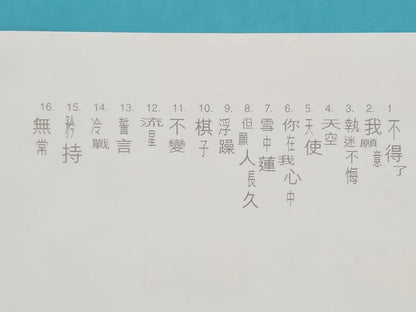 1. 不得了
2. 我願意
3. 執迷不悔
4. 天空
5. 天使
6. 你在我心中
7. 雪中蓮
8. 但願人長久
9. 浮躁
10. 棋子
11. 不變
12. 流星
13. 誓言
14. 冷戰
15. 矜持
16. 無常